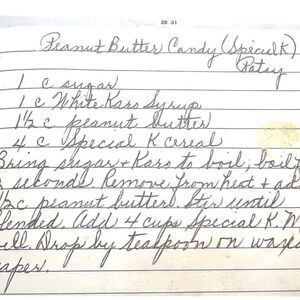 30 31
Peanut Butter Candy (Special K)
Patsy
1 c sugar
1 c White Karo Syrup
1½ c peanut butter
4 c Special K cereal
Bring sugar + Karo to boil, boil
seconds. Remove from heat + ad
½c peanut butter. Stir until
lended. Add 4 cups Special K. M
ell. Drop by teaspoon on waxed
aper.